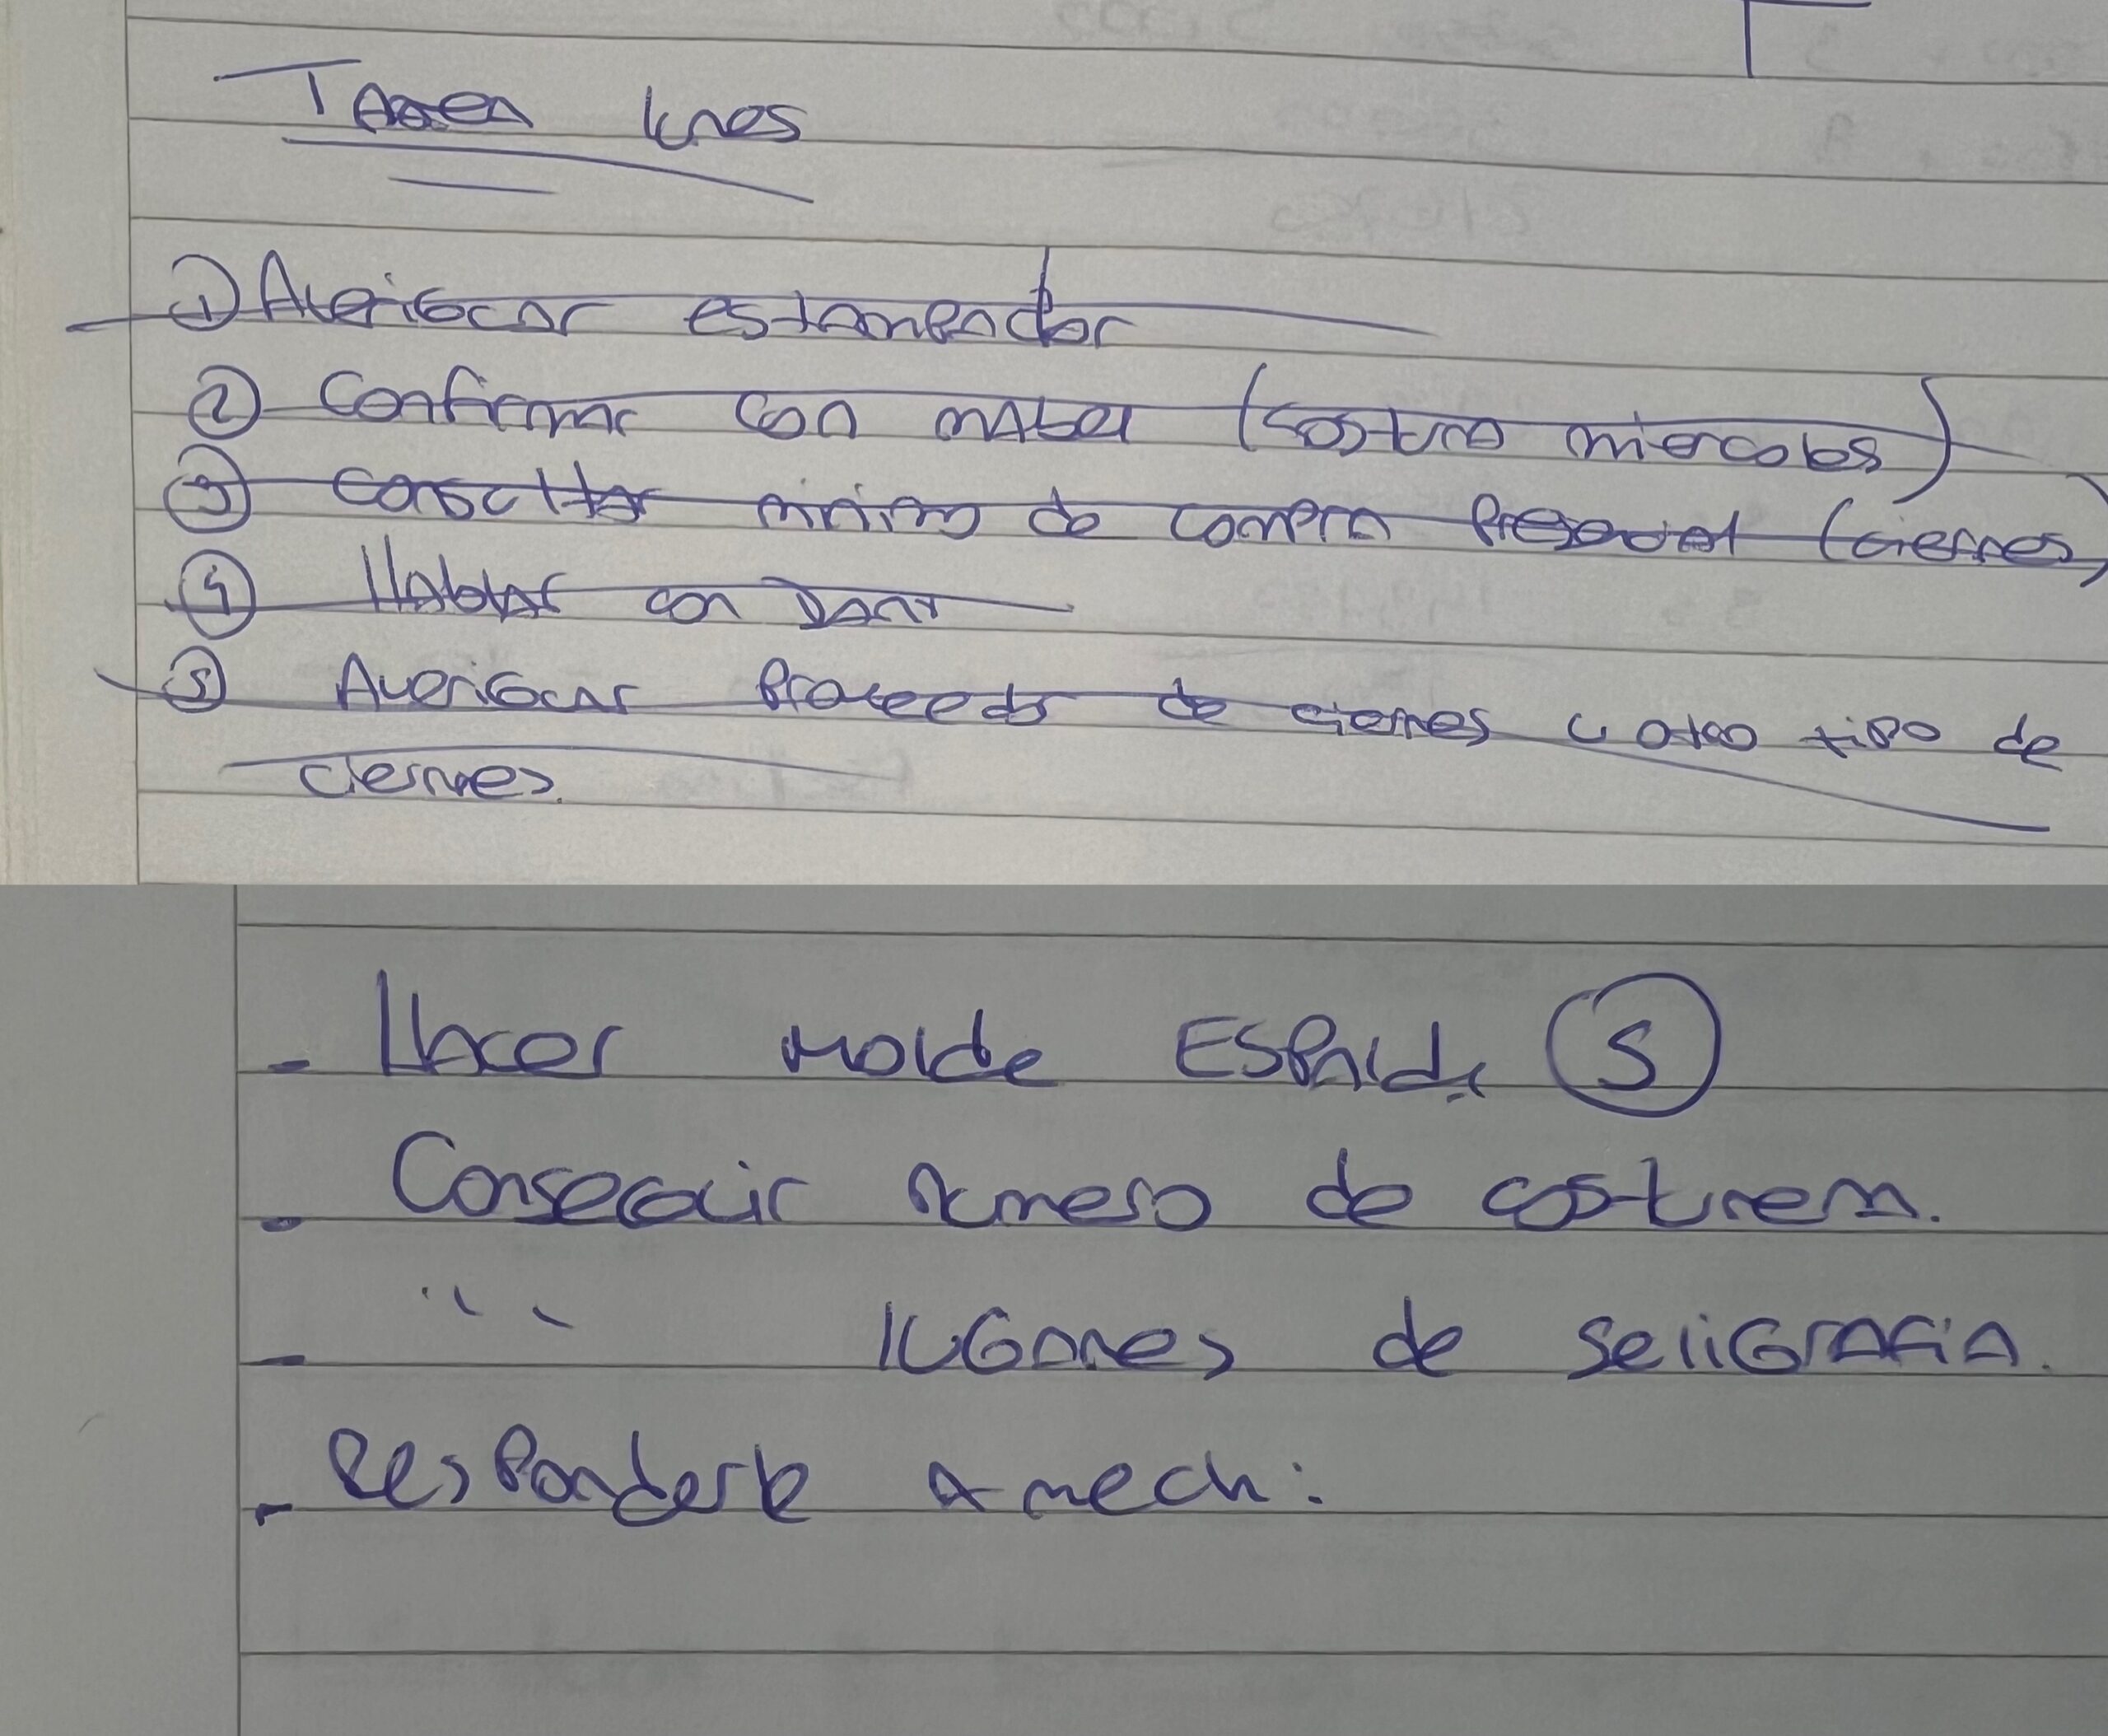 Tarea lunes
① Averiguar estampador
② Confirmar con mabel (costura miercoles)
③ consultar minimo de compra (cierres)
④ Hablar con Dany
⑤ Averiguar Proveedor de cierres u otro tipo de
cierres.
- Hacer Molde ESPalda Ⓢ
- Conseguir numero de costurera.
- " lugares de seliGRAFiA.
- Responderle a mechi